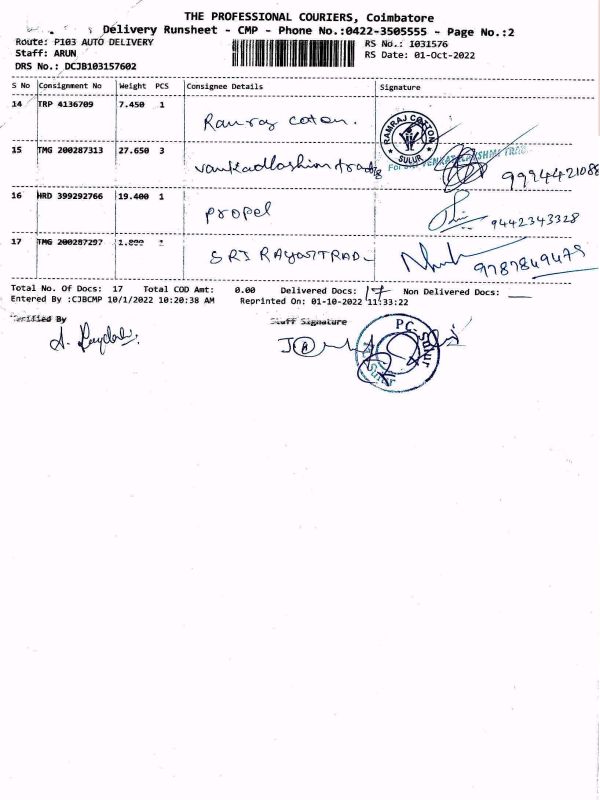 THE PROFESSIONAL COURIERS, Coimbatore
Delivery Runsheet - CMP - Phone No.:0422-3505555 - Page No.:2
Route: P103 AUTO DELIVERY
RS No.: I031576
Staff: ARUN
RS Date: 01-Oct-2022
DRS No.: DCJB103157602
S No Consignment No Weight PCS Consignee Details Signature
14 TRP 4136709 7.450 1 Ramraj coton.
RAMRAJ COTTON SULUR
15 TMG 200287313 27.650 3
9994421088
16 HRD 399292766 19.400 1 propel 9442343328
17 TMG 200287297 1.800 SRI RAYAS TRAD 9787849475
Total No. Of Docs: 17 Total COD Amt: 0.00 Delivered Docs: 17 Non Delivered Docs:
Entered By :CJBCMP 10/1/2022 10:20:38 AM Reprinted On: 01-10-2022 11:33:22
Verified By Staff Signature
PC Sulur